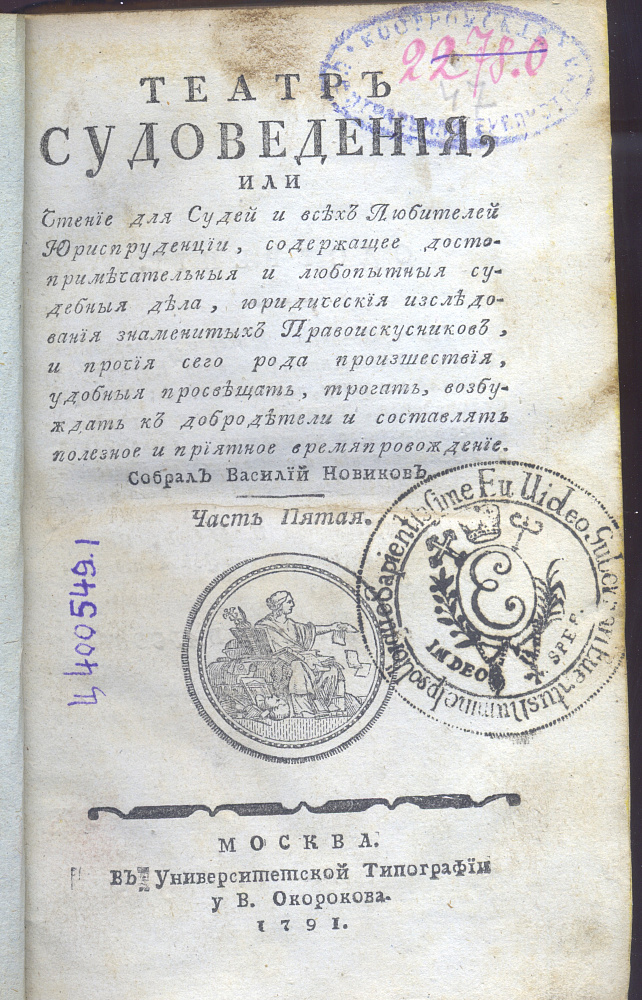 2278.0
42
ТЕАТРЪ
СУДОВЕДЕНІЯ,
ИЛИ
Чтеніе для Судей и всѣхъ Любителей
Юриспруденціи, содержащее досто-
примѣчательныя и любопытныя су-
дебныя дѣла, юридическія изслѣдо-
ванія знаменитыхъ Правоискусниковъ,
и прочія сего рода произшествія,
удобныя просвѣщать, трогать, возбу-
ждать къ добродѣтели и составлять
полезное и пріятное времяпровожденіе.
Собралъ Василій Новиковъ.
Часть Пятая.
Ц400549.1
E
IN DEO
SPER.
МОСКВА.
Въ Университетской Типографіи
у В. Окорокова.
1791.